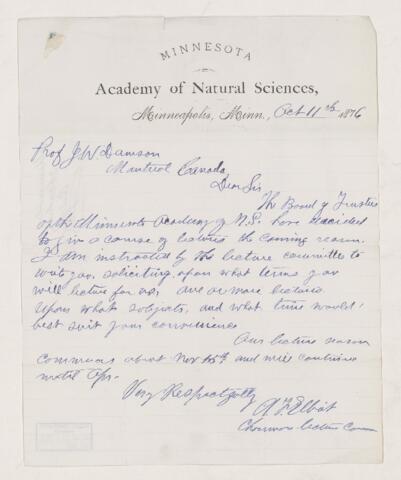 MINNESOTA
Academy of Natural Sciences,
Minneapolis, Minn., Oct 11th 1876
Prof J W Dawson
Montreal Canada
Dear Sir
The Board of Trustees
of the Minnesota Academy of N.S. have decided
to give a course of lectures the coming season.
I am instructed by the lecture committee to
write you, soliciting upon what terms you
will lecture for us, one or more lectures
upon what subjects, and what time would
best suit your convenience
Our lecture season
commences about Nov 15th and will continue
until Apr.
Very Respectfully
A F Elliot
Chairman lecture Com